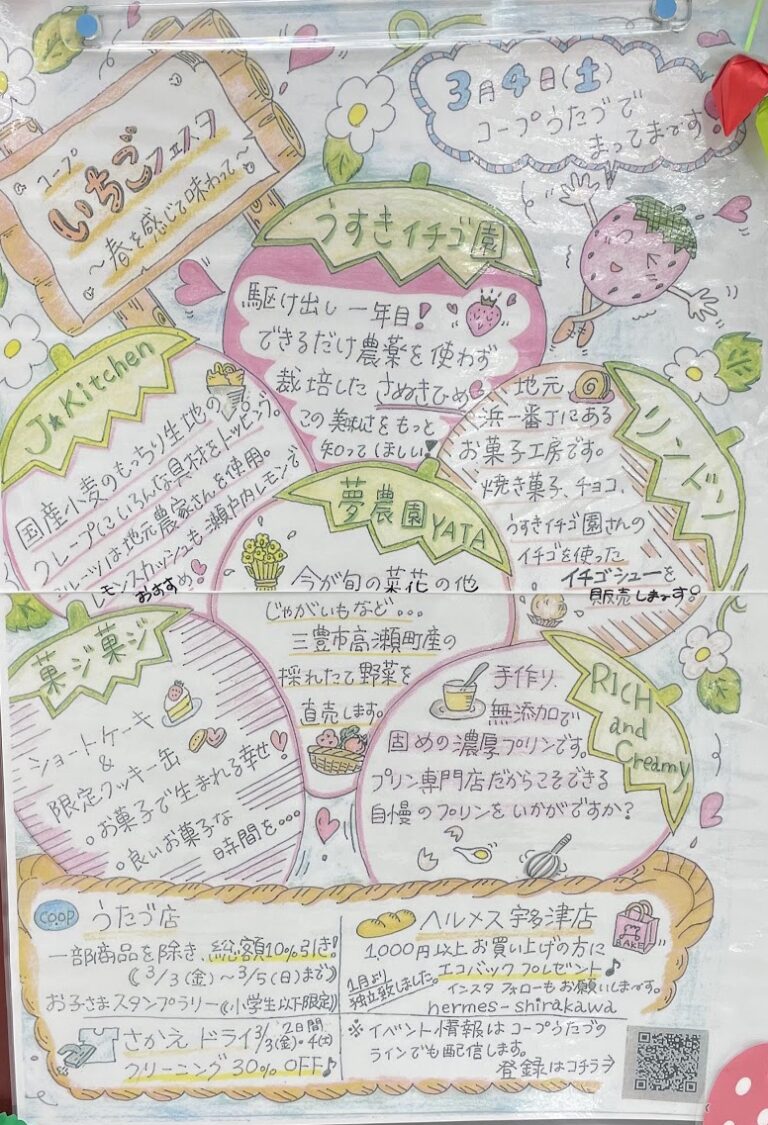 コープ
いちごフェスタ
〜春を感じて味わって〜
3月4日(土)
コープうたづで
まってまーす!
うすきイチゴ園
駆け出し一年目!
できるだけ農薬を使わず
栽培したさぬきひめ
この美味さをもっと
知ってほしい!
J★Kitchen
国産小麦のもっちり生地の
クレープにいろんな具材をトッピング。
フルーツは地元農家さんを使用。
レモンスカッシュも瀬戸内レモンで
おすすめ!
リンドン
地元
浜一番丁にある
お菓子工房です。
焼き菓子、チョコ、
うすきイチゴ園さんの
イチゴを使った
イチゴシューを
販売します。
夢農園YATA
今が旬の菜花の他
じゃがいもなど...
三豊市高瀬町産の
採れたて野菜を
直売します。
菓ジ菓ジ
ショートケーキ
&
限定クッキー缶
○お菓子で生まれる幸せ!
○良いお菓子な
時間を...
RICH
and
Creamy
手作り、
無添加で
固めの濃厚プリンです。
プリン専門店だからこそできる
自慢のプリンをいかがですか?
coop うたづ店
一部商品を除き、総額10%引き!
《3/3(金)〜3/5(日)まで》
お子さまスタンプラリー《小学生以下限定》
さかえドライ 3/3(金)・4(土) 2日間
クリーニング 30% OFF♪
ヘルメス宇多津店
BAKE
1,000円以上お買い上げの方に
1月より
独立致しました。
エコバックプレゼント♪
インスタフォローもお願いします。
hermes-shirakawa
※イベント情報はコープうたづの
ラインでも配信します。
登録はコチラ→